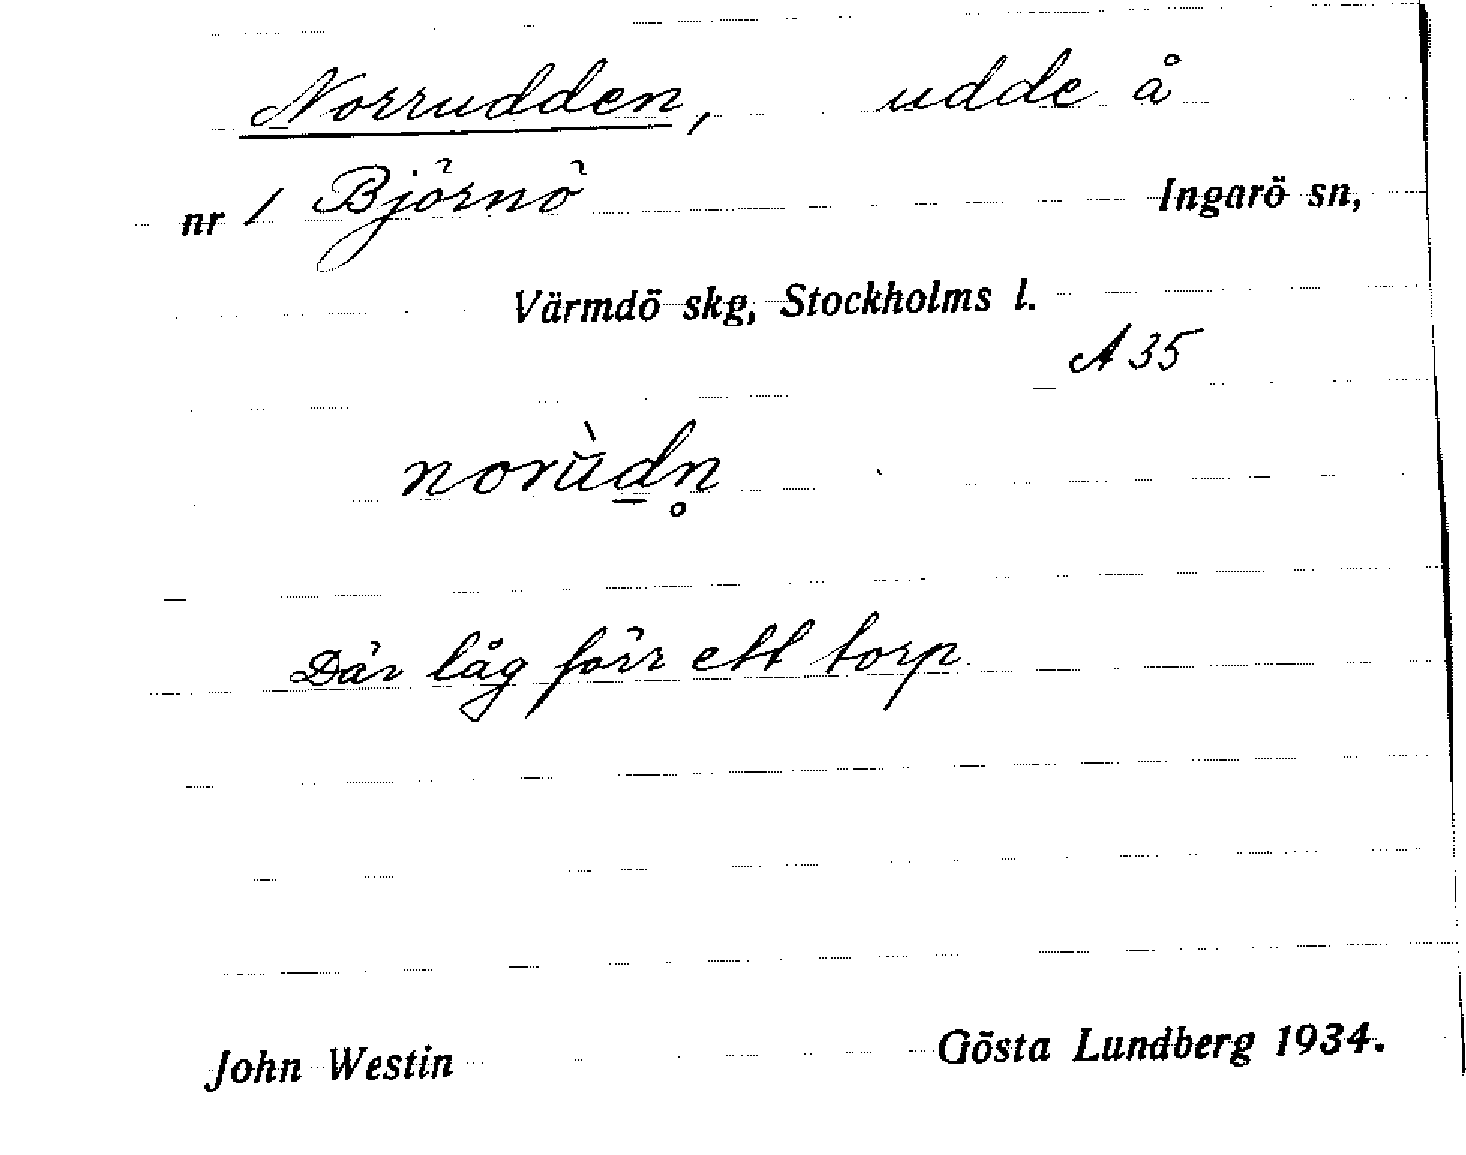 Norrudden, udde å
nr 1 Björnö Ingarö sn,
Värmdö skg, Stockholms l.
A 35
norùd̲n̥
Där låg förr ett torp.
John Westin Gösta Lundberg 1934.